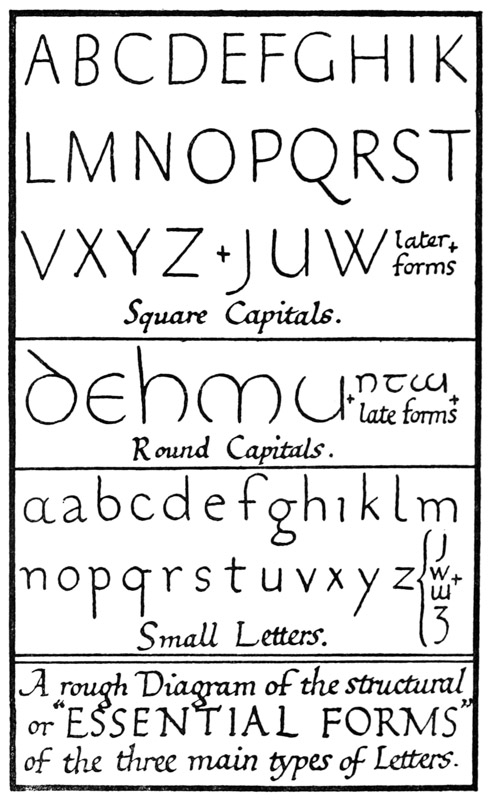 ABCDEFGHIK
LMNOPQRST
VXYZ + JUW later + forms
Square Capitals.
δЄhmu + nτɯ + late forms
Round Capitals.
ɑabcdefghıklm
nopqrstuvxyz { ȷ w ɯ ʒ +
Small Letters.
A rough Diagram of the structural
or "ESSENTIAL FORMS"
of the three main types of Letters.